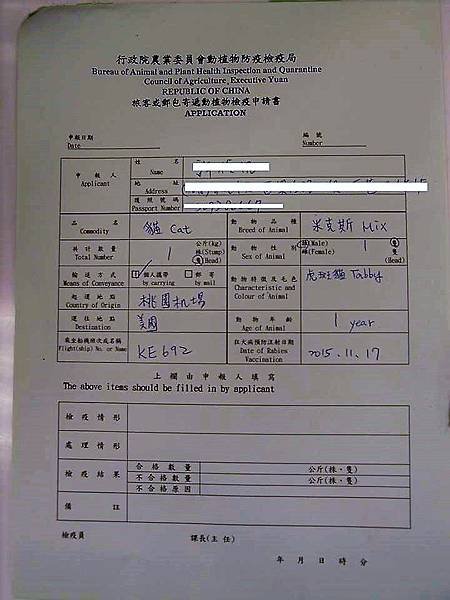 行政院農業委員會動植物防疫檢疫局
Bureau of Animal and Plant Health Inspection and Quarantine
Council of Agriculture, Executive Yuan
REPUBLIC OF CHINA
旅客或郵包寄遞動植物檢疫申請書
APPLICATION
申報日期
Date
編號
Number
申報人
Applicant
姓名
Name
地址
Address
護照號碼
Passport Number
品名
Commodity
貓 Cat
動物品種
Breed of Animal
米克斯 Mix
共計數量
Total Number
1
公斤(kg)
株(Stump)
隻(Head)
動物性別
Sex of Animal
雄(Male)
雌(Female)
1
隻
(Head)
輸送方式
Means of Conveyance
個人攜帶
by carrying
郵寄
by mail
動物特徵及毛色
Characteristic and
Colour of Animal
虎斑貓 Tabby
起運地點
Country of Origin
桃園机場
運往地點
Destination
美國
動物年齡
Age of Animal
1 year
飛機(船)班次或名稱
Flight(ship) No. or Name
KE692
狂犬病預防注射日期
Date of Rabies
Vaccination
2015.11.17
上欄由申報人填寫
The above items should be filled in by applicant
檢疫情形
處理情形
檢疫結果
合格數量
公斤(株·隻)
不合格數量
公斤(株·隻)
不合格原因
備註
檢疫員
課長(主任)
年 月 日 時 分